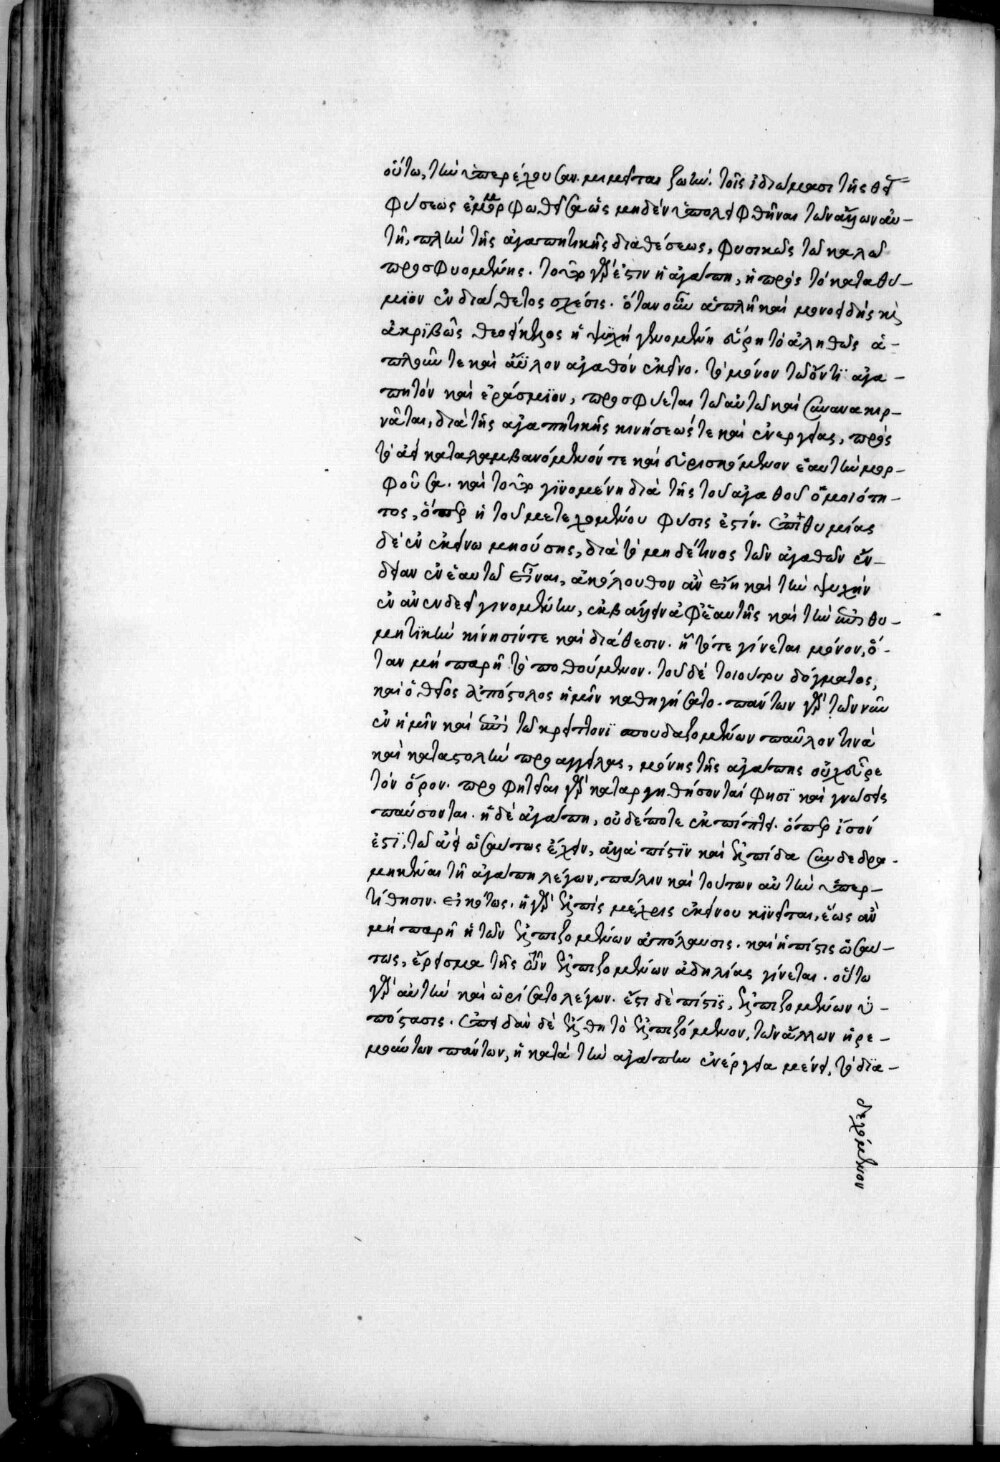 οὕτω, τὴν ὑπερέχουσαν μιμεῖται ζωὴν. τοῖς ἰδιώμασι τῆς θείας
φύσεως ἐμμορφωθεῖσα ὡς μηδὲν ὑπολειφθῆναι τῶν ἄλλων αὐ-
τῇ, πλὴν τῆς ἀγαπητικῆς διαθέσεως, φυσικῶς τῷ καλῷ
προσφυομένης. τοῦτο γάρ ἐστιν ἡ ἀγάπη, ἡ πρὸς τὸ καταθύ-
μιον ἐνδιάθετος σχέσις. ὅταν οὖν ἁπλῆ καὶ μονοειδὴς καὶ
ἀκριβῶς θεοείκελος ἡ ψυχὴ γενομένη εὕρῃ τὸ ἀληθῶς ἁ-
πλοῦν τε καὶ ἄϋλον ἀγαθὸν ἐκεῖνο. τὸ μόνον τῷ ὄντι ἀγα-
πητὸν καὶ ἐράσμιον, προσφύεται τῷ αὐτῷ καὶ συνανακιρ-
νᾶται, διὰ τῆς ἀγαπητικῆς κινήσεώς τε καὶ ἐνεργείας, πρὸς
τὸ ἀεὶ καταλαμβανόμενόν τε καὶ εὑρισκόμενον ἑαυτὴν μορ-
φοῦσα. καὶ τοῦτο γινομένη διὰ τῆς τοῦ ἀγαθοῦ ὁμοιότη-
τος, ὅπερ ἡ τοῦ μετεχομένου φύσις ἐστίν. ἐπιθυμίας
δὲ ἐν ἐκείνω μὴ οὔσης, διὰ τὸ μηδέ τινος τῶν ἀγαθῶν ἔν-
δειαν ἐν ἑαυτῷ εἶναι, ἀκόλουθον ἂν εἴη καὶ τὴν ψυχὴν
ἐν ἀνενδεεῖ γινομένην, ἐκβαλεῖν ἀφ' ἑαυτῆς καὶ τὴν ἐπιθυ-
μητικὴν κίνησίν τε καὶ διάθεσιν. ἣ τότε γίνεται μόνον, ὅ-
ταν μὴ παρῇ τὸ ποθούμενον. τοῦ δὲ τοιούτου δόγματος,
καὶ ὁ θεῖος ἀπόστολος ἡμῖν καθηγήσατο. πάντων γὰρ τῶν νῦν
ἐν ἡμῖν καὶ ἐπὶ τῷ κρείττονι σπουδαζομένων παῦλάν τινα
καὶ καταστολὴν προαγγείλας, μόνης τῆς ἀγάπης οὐχ εὗρε
τὸν ὅρον. προφητεῖαι γὰρ καταργηθήσονταί φησι καὶ γνώσεις
παύσονται. ἡ δὲ ἀγάπη, οὐδέποτε ἐκπίπτει. ὅπερ ἴσον
ἐστὶ, τῷ ἀεὶ ὡσαύτως ἔχειν, ἀλλὰ πίστιν καὶ ἐλπίδα συνδεδρα-
μηκέναι τῇ ἀγάπῃ λέγων, πάλιν καὶ τούτων αὐτὴν ὑπερ-
τίθησιν. εἰκότως. ἡ γὰρ ἐλπὶς μέχρις ἐκείνου κινεῖται, ἕως ἂν
μὴ παρῇ ἡ τῶν ἐλπιζομένων ἀπόλαυσις. καὶ ἡ πίστις ὡσαύ-
τως, ἔρεισμα τῆς τῶν ἐλπιζομένων ἀδηλίας γίνεται. οὕτω
γὰρ αὐτὴν καὶ ὡρίσατο λέγων. ἔστι δὲ πίστις, ἐλπιζομένων ὑ-
πόστασις. ἐπειδὰν δὲ ἔλθῃ τὸ ἐλπιζόμενον, τῶν ἄλλων ἠρε-
μούντων πάντων, ἡ κατὰ τὴν ἀγάπην ἐνέργεια μένει, τὸ δια-
δεχόμενον